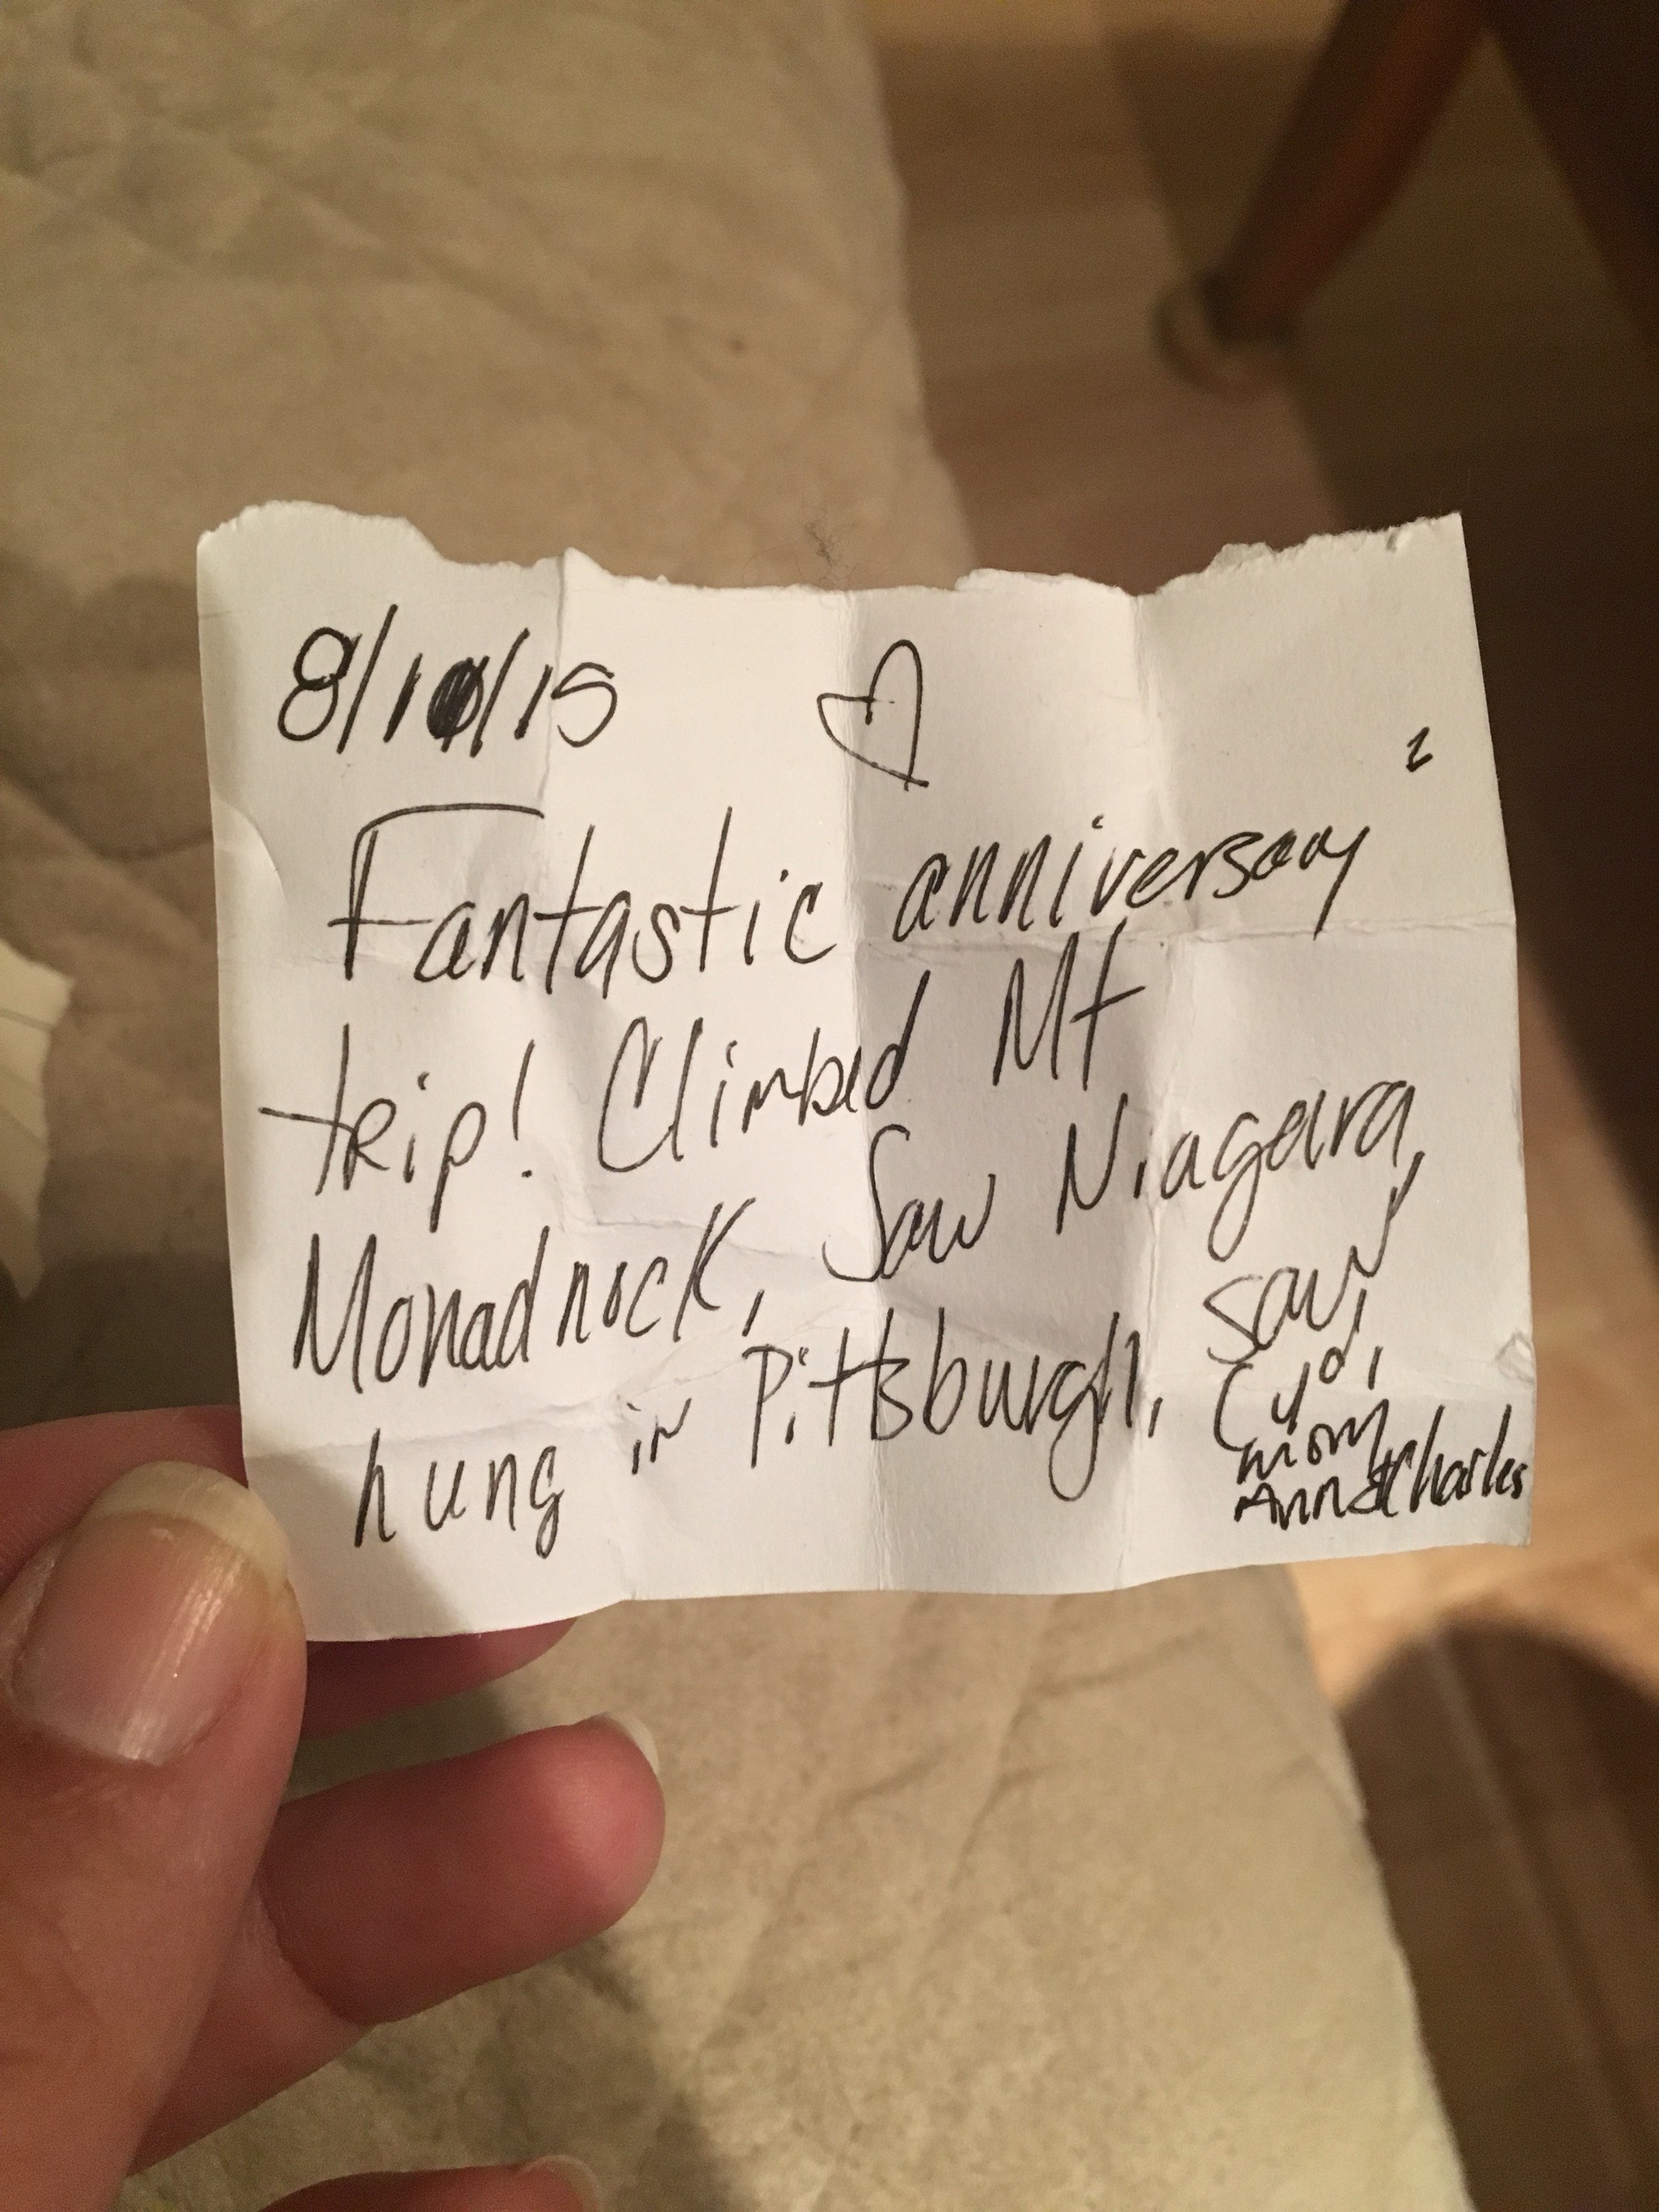 8/10/15
2
Fantastic anniversary
trip! Climbed Mt
Monadnock, Saw Niagara,
hung in Pittsburgh, saw
Cyd,
mom,
Ann & Charles